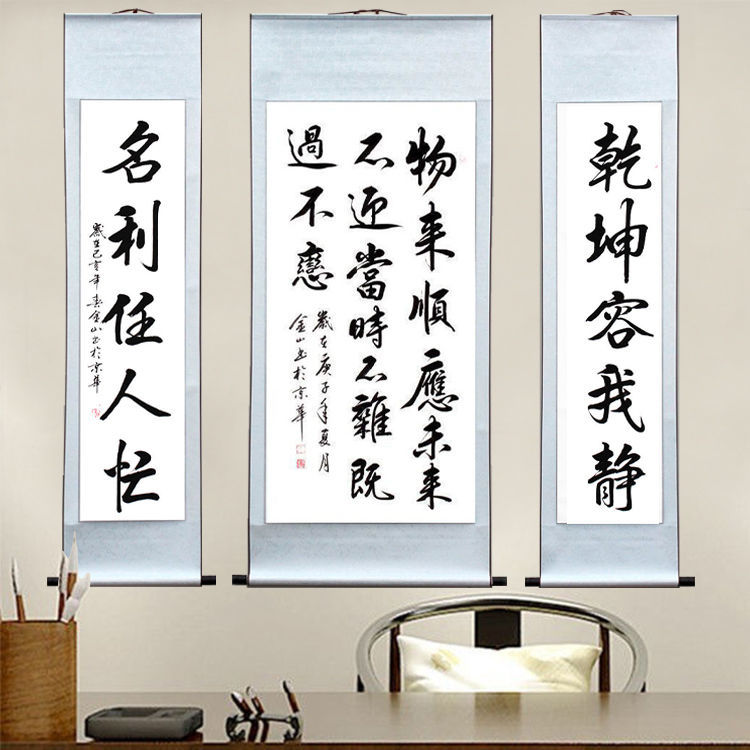 乾坤容我静
物来順應未来
不迎當時不雜既
過不戀
歲在庚子年夏月
金山书於京華
名利任人忙
歲在己亥年春金山书於京華